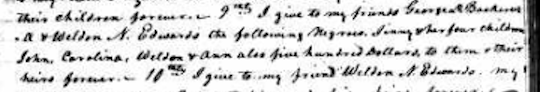 their children forever. 9thly I give to my friends George E. Badger
A & Weldon N. Edwards the following Negroes. Jinny & her four children
John, Carolina, Weldon & Ann also five hundred Dollars, to them & their
heirs forever. 10thly I give to my friend Weldon N. Edwards. my